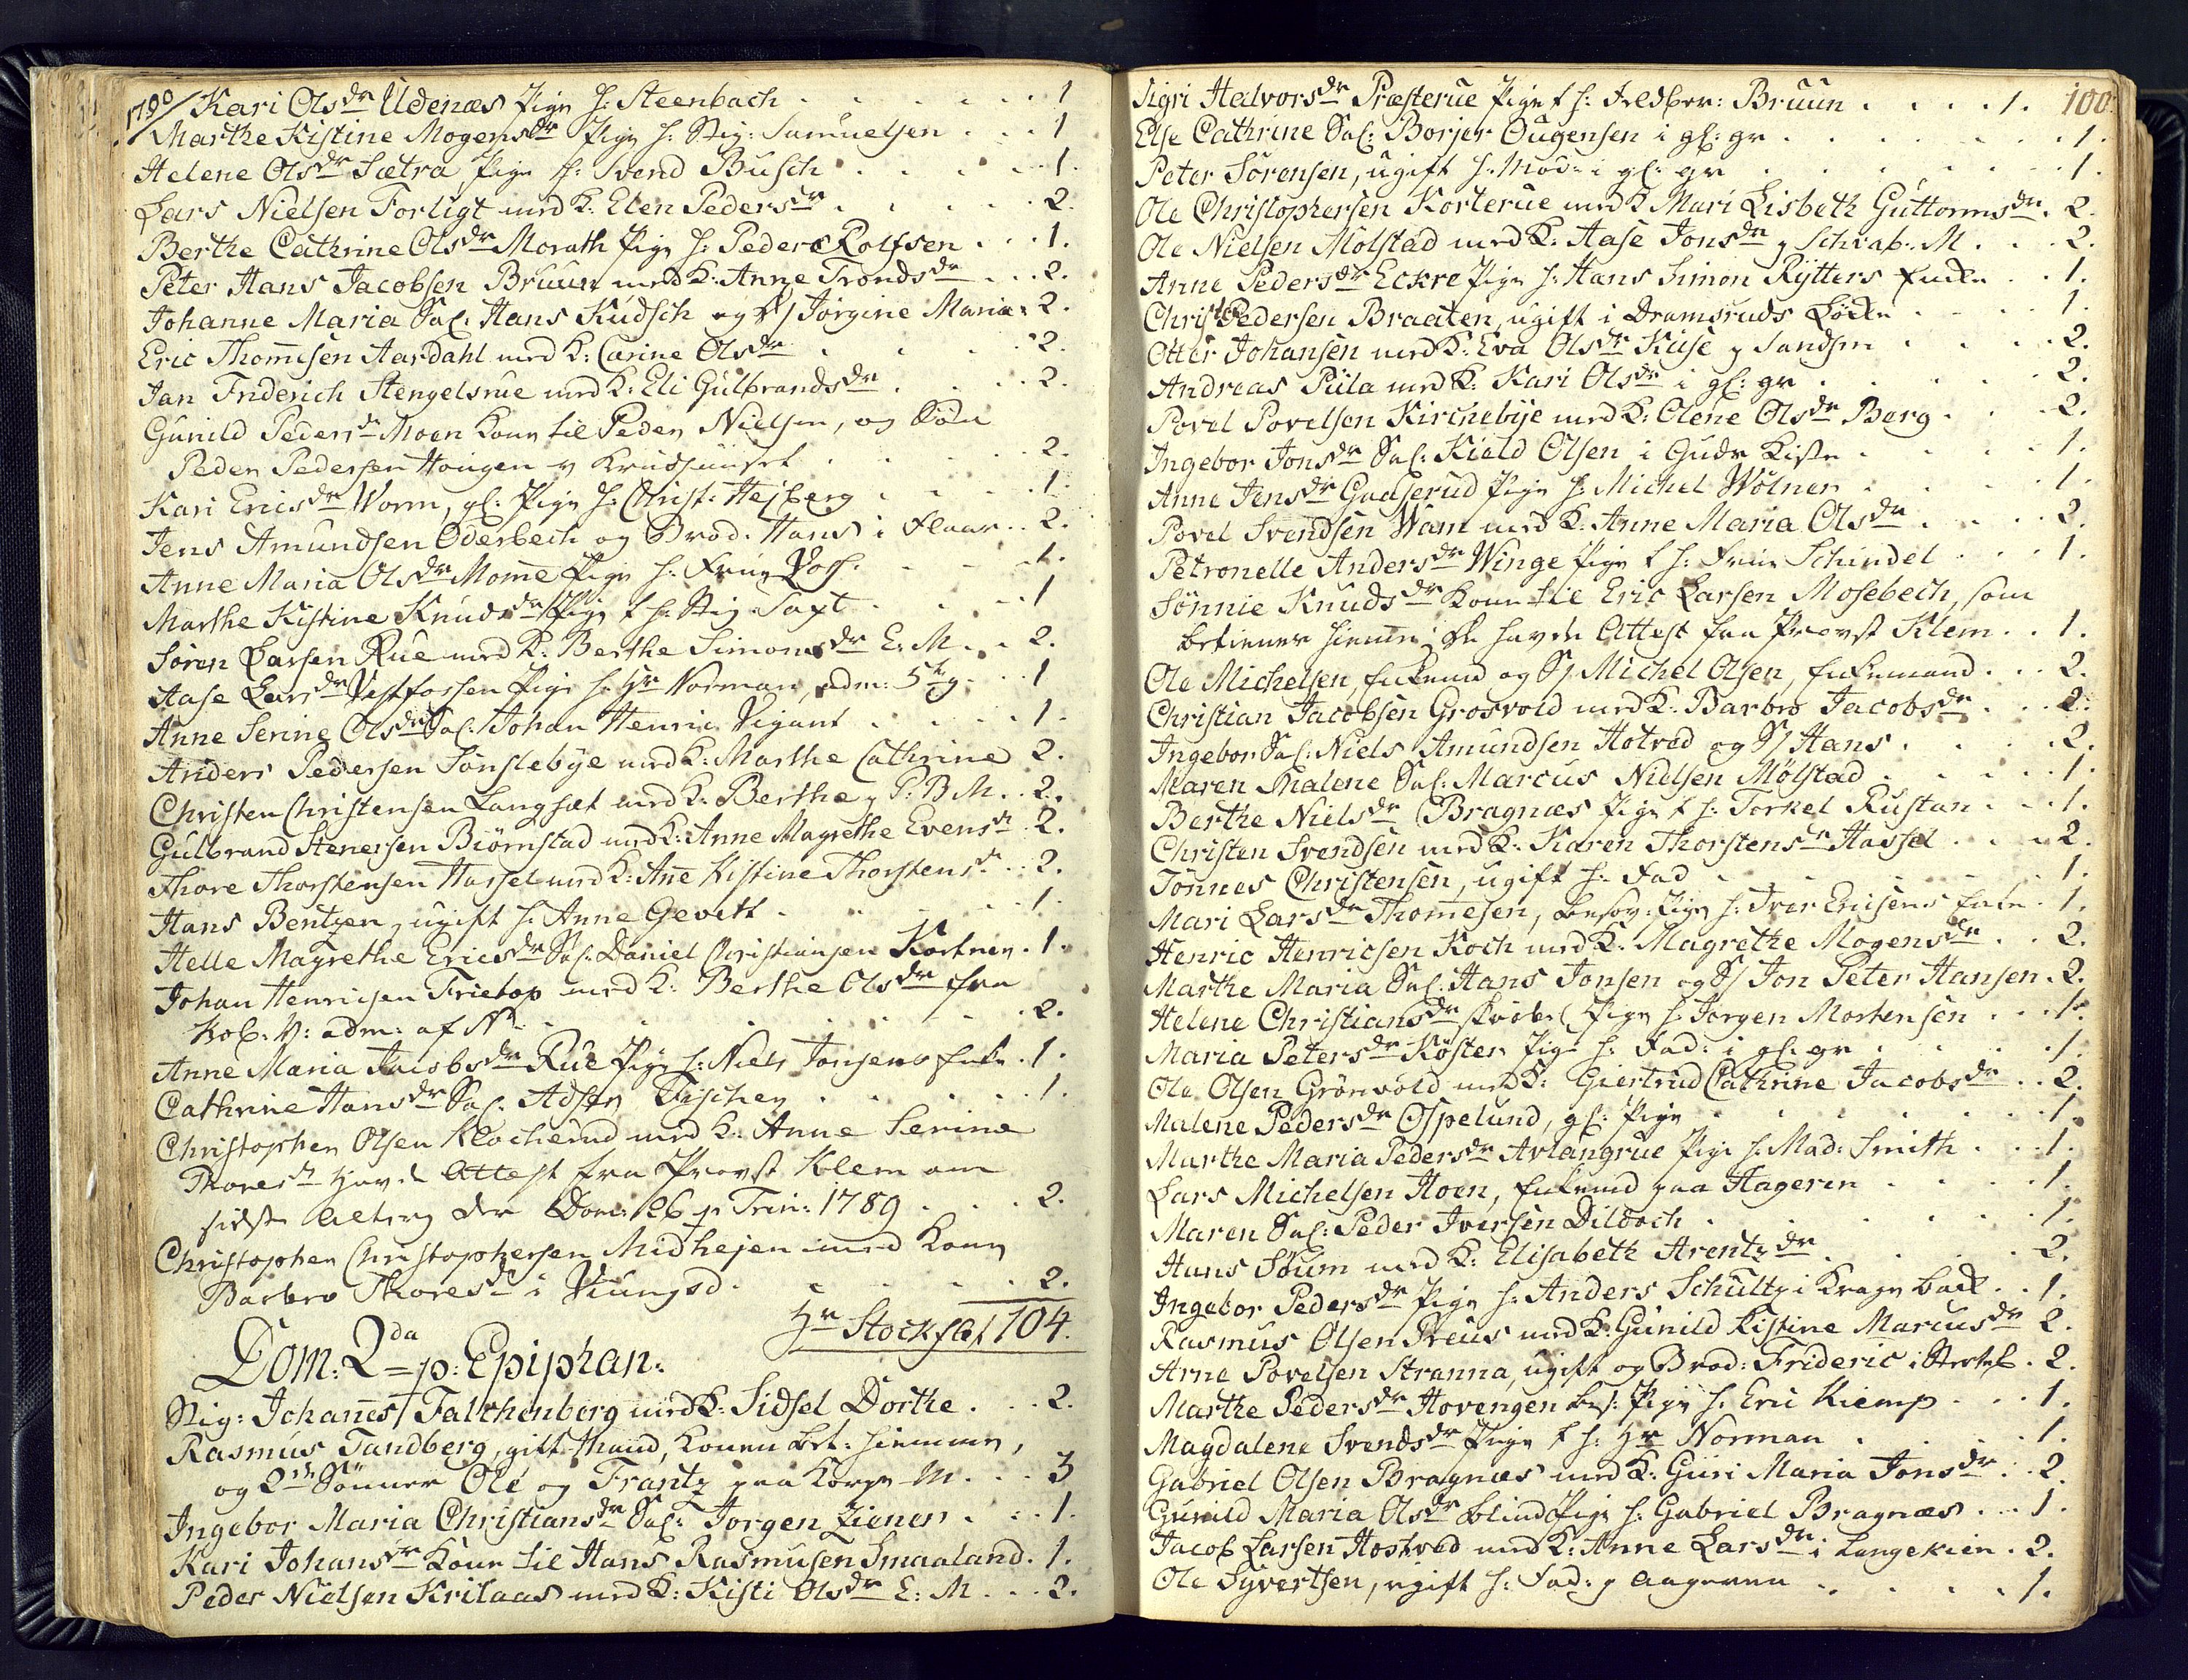 1790/ Kari Olsdr Udenæs Pige h: Steenbach . . . . . . 1
Marthe Kistine Mogensdr Pige h: Sig: Samuelsen . . . 1
Helene Olsdr Sætra, Pige h: Svend Busch . . . . 1.
Lars Nielsen Forligt med K: Elen Pedersdr . . . . . 2.
Berthe Cathrine Olsdr Morath Pige h: Peder Rolfsen . . . 1.
Peter Hans Jacobsen Bruun med K: Anne Trondsdr . . . 2.
Johanne Maria Sal: Hans Kudsch og D/ Jörgine Maria . 2.
Eric Thomesen Aardahl med K: Carine Olsdr . . . . 2.
Jan Friderich Stengelsrue med K: Eli Gulbrandsdr . . . . 2.
Gunild Pedersdr Moen Kone til Peder Nielsen, og Södn
Peder Pedersen Hougen . . . . . 2.
Kari Ericsdr Worm, gl: Pige h: Christ: Hejberg . . . . 1.
Jens Amundsen Oderbech og Brod: Hans i Flaar . . 2.
Anne Maria Olsdr Mome Pige h: Frue Voss . . . . 1.
Marthe Kistine Knudsdr Pige t h: Sig: Saxt . . . . 1
Sören Larsen Rue med K: Berthe Simonsdr E: M . . 2.
Aase Larsdr Vestfossen Pige h: Hr Norman, adm: 5te g . . . 1
Anne Serine Olsdr Sal: Johan Henric Vigant . . . . . 1.
Anders Pedersen Sönslebÿe med K: Marthe Cathrine 2.
Christen Christensen Langsæt med K: Berthe P: B M . . 2.
Gulbrand Stenersen Biörnstad med K: Anne Magrethe Evensdr 2.
Thore Thorstensen Hassel med K: Ane Kistine Thorstensdr . . 2.
Hans Bentzen, ugift h: Anne Gevelt . . . . . . 1.
Helle Magrethe Ericsdr Sal: Daniel Christiansen Kortner . 1.
Johan Henricsen Frietop med K: Berthe Olsdr fra
Kob: V: adm: af N . . . . . . . . 2.
Anne Maria Jacobsdr Rue Pige h: Niels Jonsens Enke . 1.
Cathrine Hansdr Sal: Adser Fischer . . . . . 1.
Christopher Olsen Klocherud med K: Anne Serine
Thoresdr havde Attest fra Provst Klem om
sidste Alterg der Dom: 26 p Trin: 1789 . . . 2.
Christopher Christophersen Midhejen med Kone
Barbro Thoresdr i Viungsd . . . . . 2.
Hr Stockflet 104.
Dom: 2da p: Epiphan:
Sig: Johannes Falchenberg med K: Sidsel Dorthe . . . 2.
Rasmus Tandberg, gift Mand, Konen bet: hiemme,
og 2de Sönner Ole og Frantz paa Korge M . . . 3
Ingebor Maria Christiansdr Sal: Jörgen Ziener . . . 1.
Kari Johansdr Kone til Hans Rasmusen Smaaland . 1.
Peder Nielsen Krilaas med K: Kisti Olsdr E: M . . . 2.
100.
Sigri Halvorsdr Præsterue Pige t h: Feldber: Bruun . . . . 1.
Else Cathrine Sal: Borjer Ougensen i gl: gr . . . . . . 1.
Peter Sörensen, ugift h: Mod: i gl: gr . . . . . . 1.
Ole Christophersen Korterue med K Mari Lisbeth Guttormsdr . 2.
Ole Nielsen Mölstad med K: Aase Jonsdr p Schrab: M . . . 2.
Anne Pedersdr Eckre Pige h: Hans Simon Rÿtters Enke . . 1.
Christ: Pedersen Braaten, ugift i Dramsruds Löcke . . . . 1.
Otter Johansen med K: Eva Olsdr Kuse p Sandsm . . . . 2.
Andreas Piila med K: Kari Olsdr i gl: gr . . . . 2.
Povel Povelsen Kirchebÿe med K: Olene Olsdr Berg . . . 2.
Ingebor Jonsdr Sal: Kield Olsen i Guds Kiste . . . . . 1.
Anne Jensdr Gaaserud Pige h: Michel Wölner . . . . . 1.
Povel Svendsen Wam med K: Anne Maria Olsdr . . . . . 2.
Petronelle Andersdr Winge Pige t h: Frue Schindel . . . 1.
Sönnie Knudsdr Kone til Eric Larsen Mosebech, som
betiener hiemme; De havde Attest fra Provst Klem . . 1.
Ole Michelsen, Enkemd og S/ Michel Olsen, Enkemand . . . 2.
Christian Jacobsen Grosvold med K: Barbro Jacobsdr . . . 2.
Ingebor Sal: Niels Amundsen Hotved og S/ Hans . . . . 2.
Maren Malene Sal: Marcus Nielsen Mölstad . . . . . . 1.
Berthe Nielsdr Bragnæs Pige t h: Torkel Rustan . . . 1.
Christen Svendsen med K: Karen Thorstensdr Hassel . . . 2.
Tönnes Christensen, ugift h: Fad . . . . . . . 1.
Mari Larsdr Thomesen, besov: Pige h: Iver Enisens Enke . 1.
Henric Henricsen Koch med K: Magrethe Mogensdr . . 2.
Marthe Maria Sal: Hans Jonsen og S/ Jon Peter Hansen . 2.
Helene Christiansdr Pige h: Jorgen Mortensen . . . 1.
Maria Petersdr Köster Pige h: Fad: i gl: gr . . . . . 1.
Ole Olsen Grönvold med K: Giertrud Cathrine Jacobsdr . . 2.
Malene Pedersdr Ospelund, gl: Pige . . . . . . 1.
Marthe Maria Pedersdr Arlangrue Pige h: Mad: Smith . . . 1.
Lars Michelsen Hoen, Enkemd paa Hageren . . . . 1.
Maren Sal: Peder Iversen Dildoch . . . . . . 1.
Hans Söum med K: Elisabeth Arentzdr . . . . . 2.
Ingebor Pedersdr Pige h: Anders Schultz i Krage back . . 1.
Rasmus Olsen Preus med K: Gunild Kistine Marcusdr 2.
Arne Povelsen Stranna, ugift og Brod: Frideric i . 2.
Marthe Pedersdr Hovengen bes: Pige h: Eric Kiemp . . . 1.
Magdalene Svendsdr Pige t h: Hr Norman . . . . 1.
Gabriel Olsen Bragnæs med K: Guri Maria Jonsdr . . 2.
Gunild Maria Olsdr blind Pige h: Gabriel Bragnæs . . . 1.
Jacob Larsen Hostved med K: Anne Larsdr i Langekien . 2.
Ole Syvertsen, ugift h: Fad: p Aageren . . . . . 1.